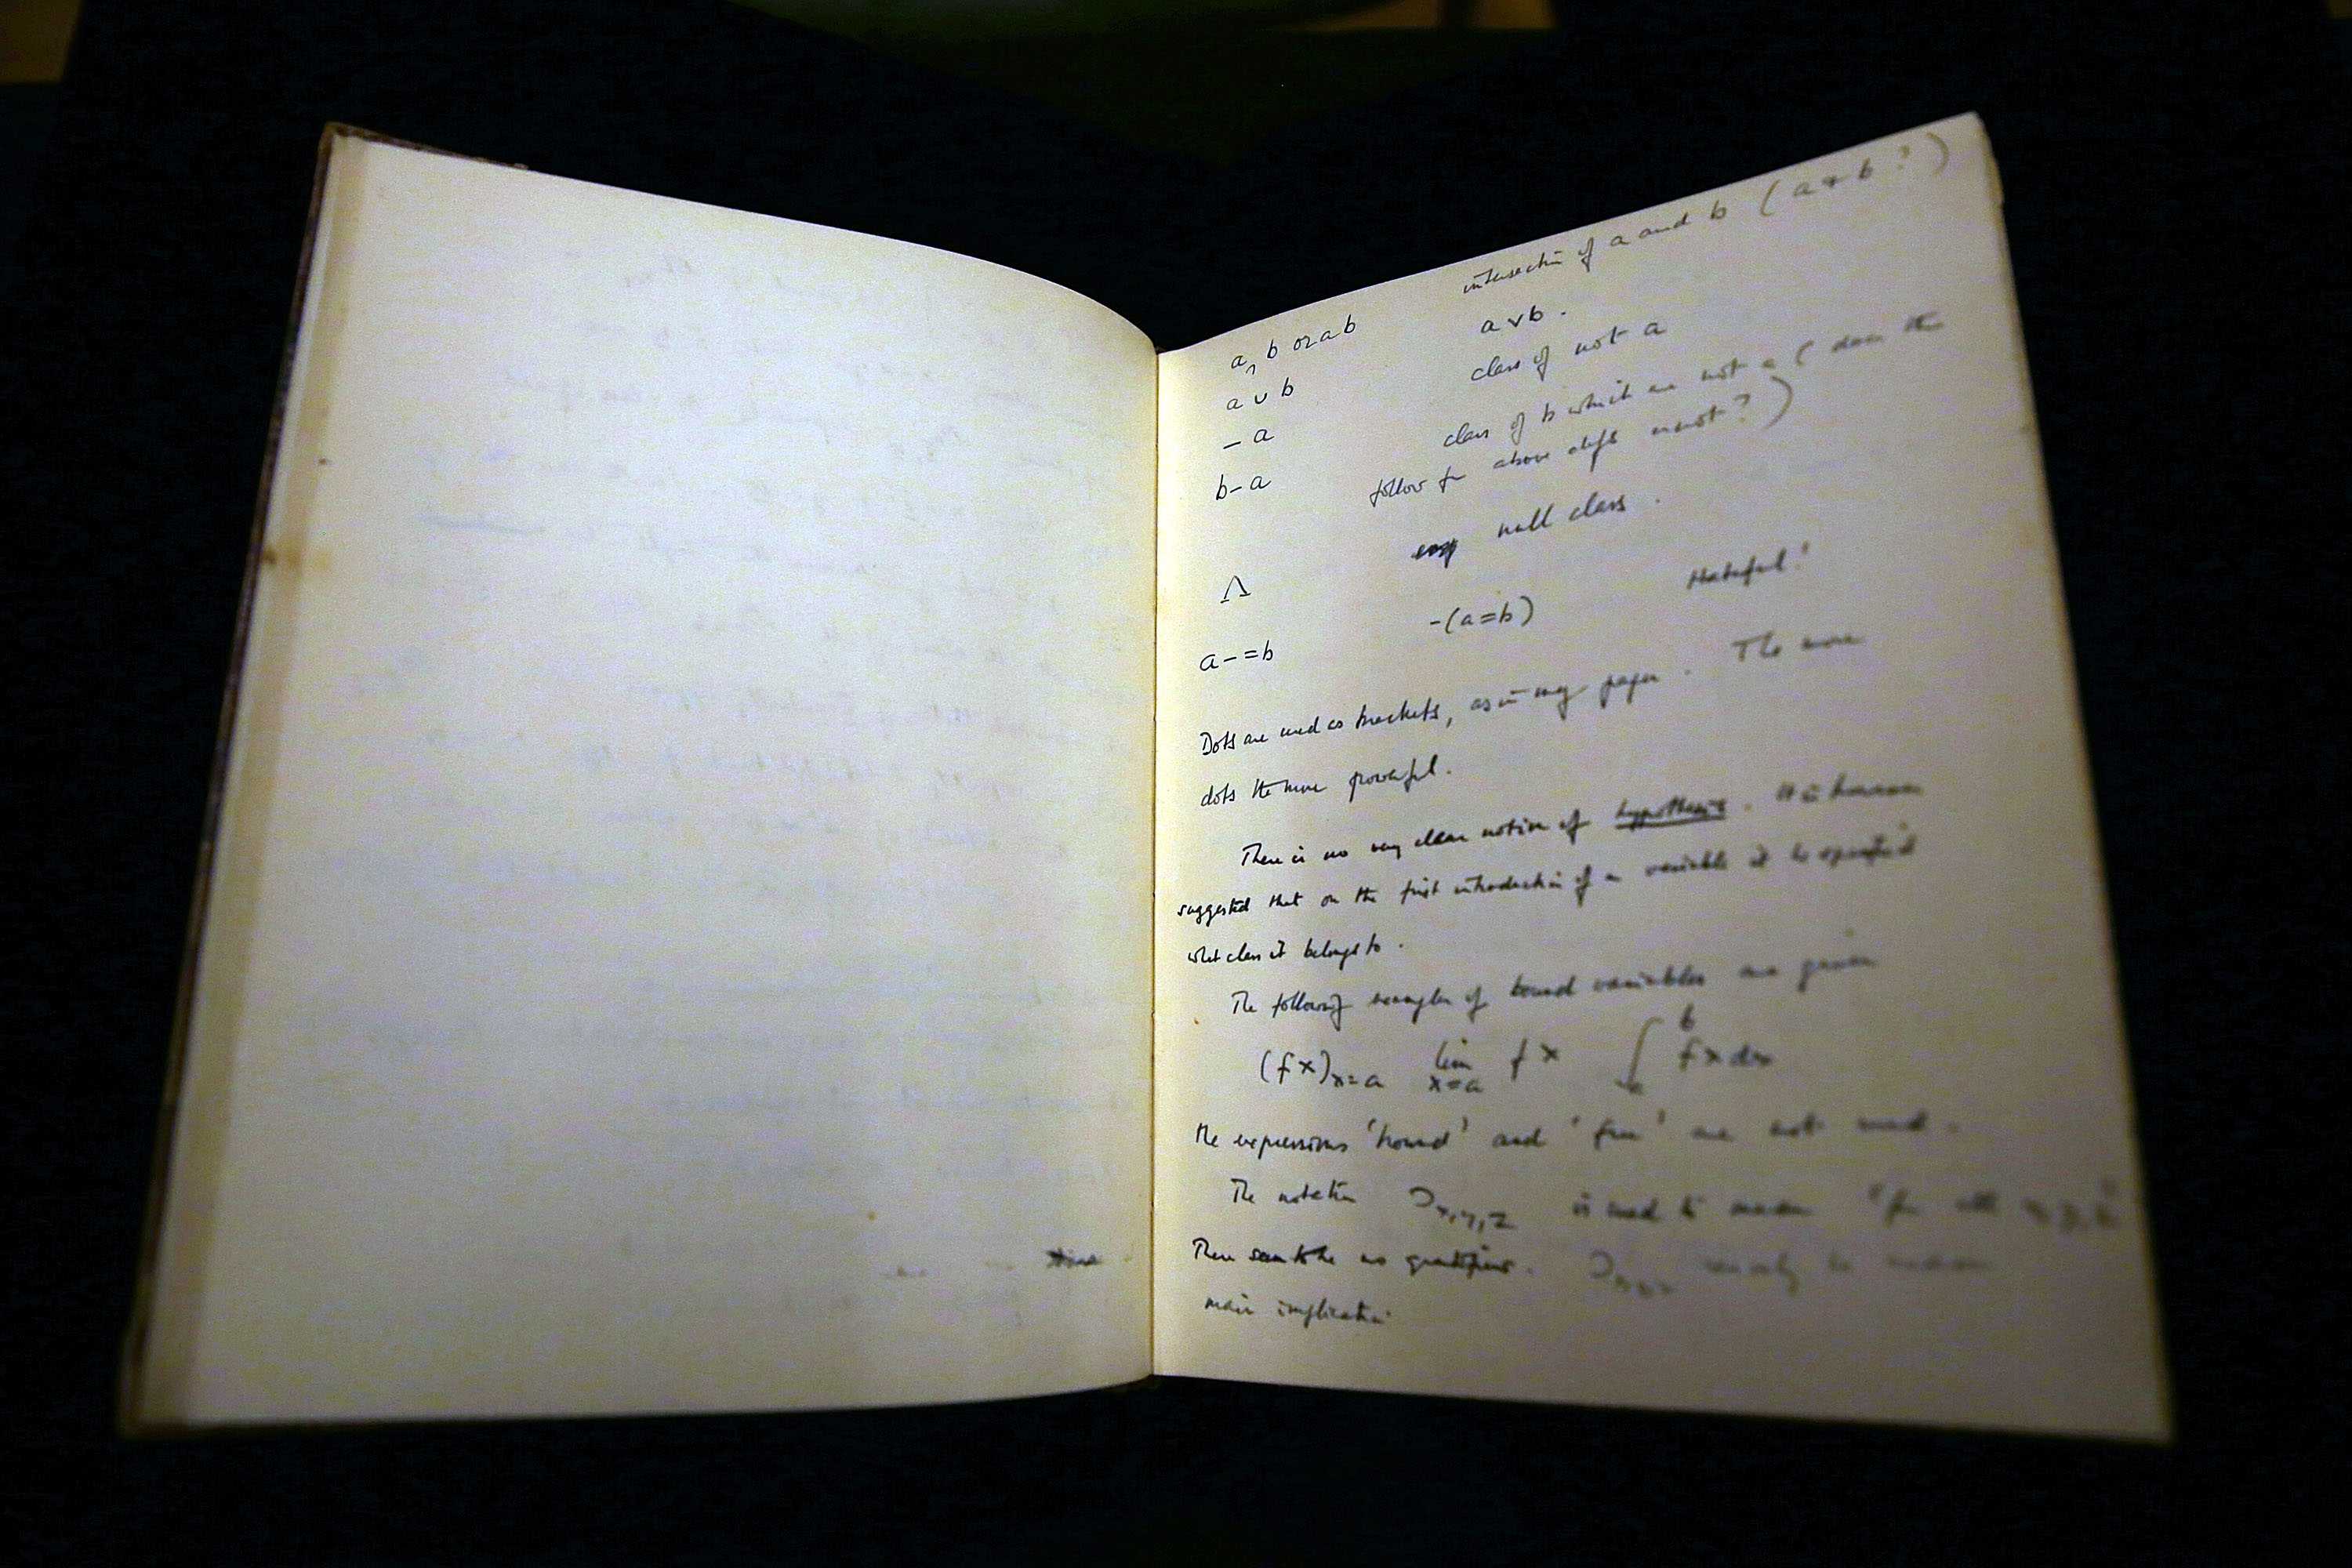 a ∩ b or ab intersection of a and b (a & b ?)
a ∪ b a v b .
– a class of not a
b – a class of b which are not a ( does this
follow fr above defs or not ? )
Λ null class .
a – = b –(a = b) Hateful !
Dots are used as brackets, as in my paper . The more
dots the more powerful .
There is no very clear notion of hypothesis . It is however
suggested that on the first introduction of a variable it be specified
what class it belongs to .
The following examples of bound variables are given
(f x)x=a lim x=a f x ∫ab f x dx
the expressions 'bound' and 'free' are not used .
The notation Ɔx,y,z is used to mean "for all x,y,z"
There seem to be no quantifiers . Ɔx,y,z
main implication